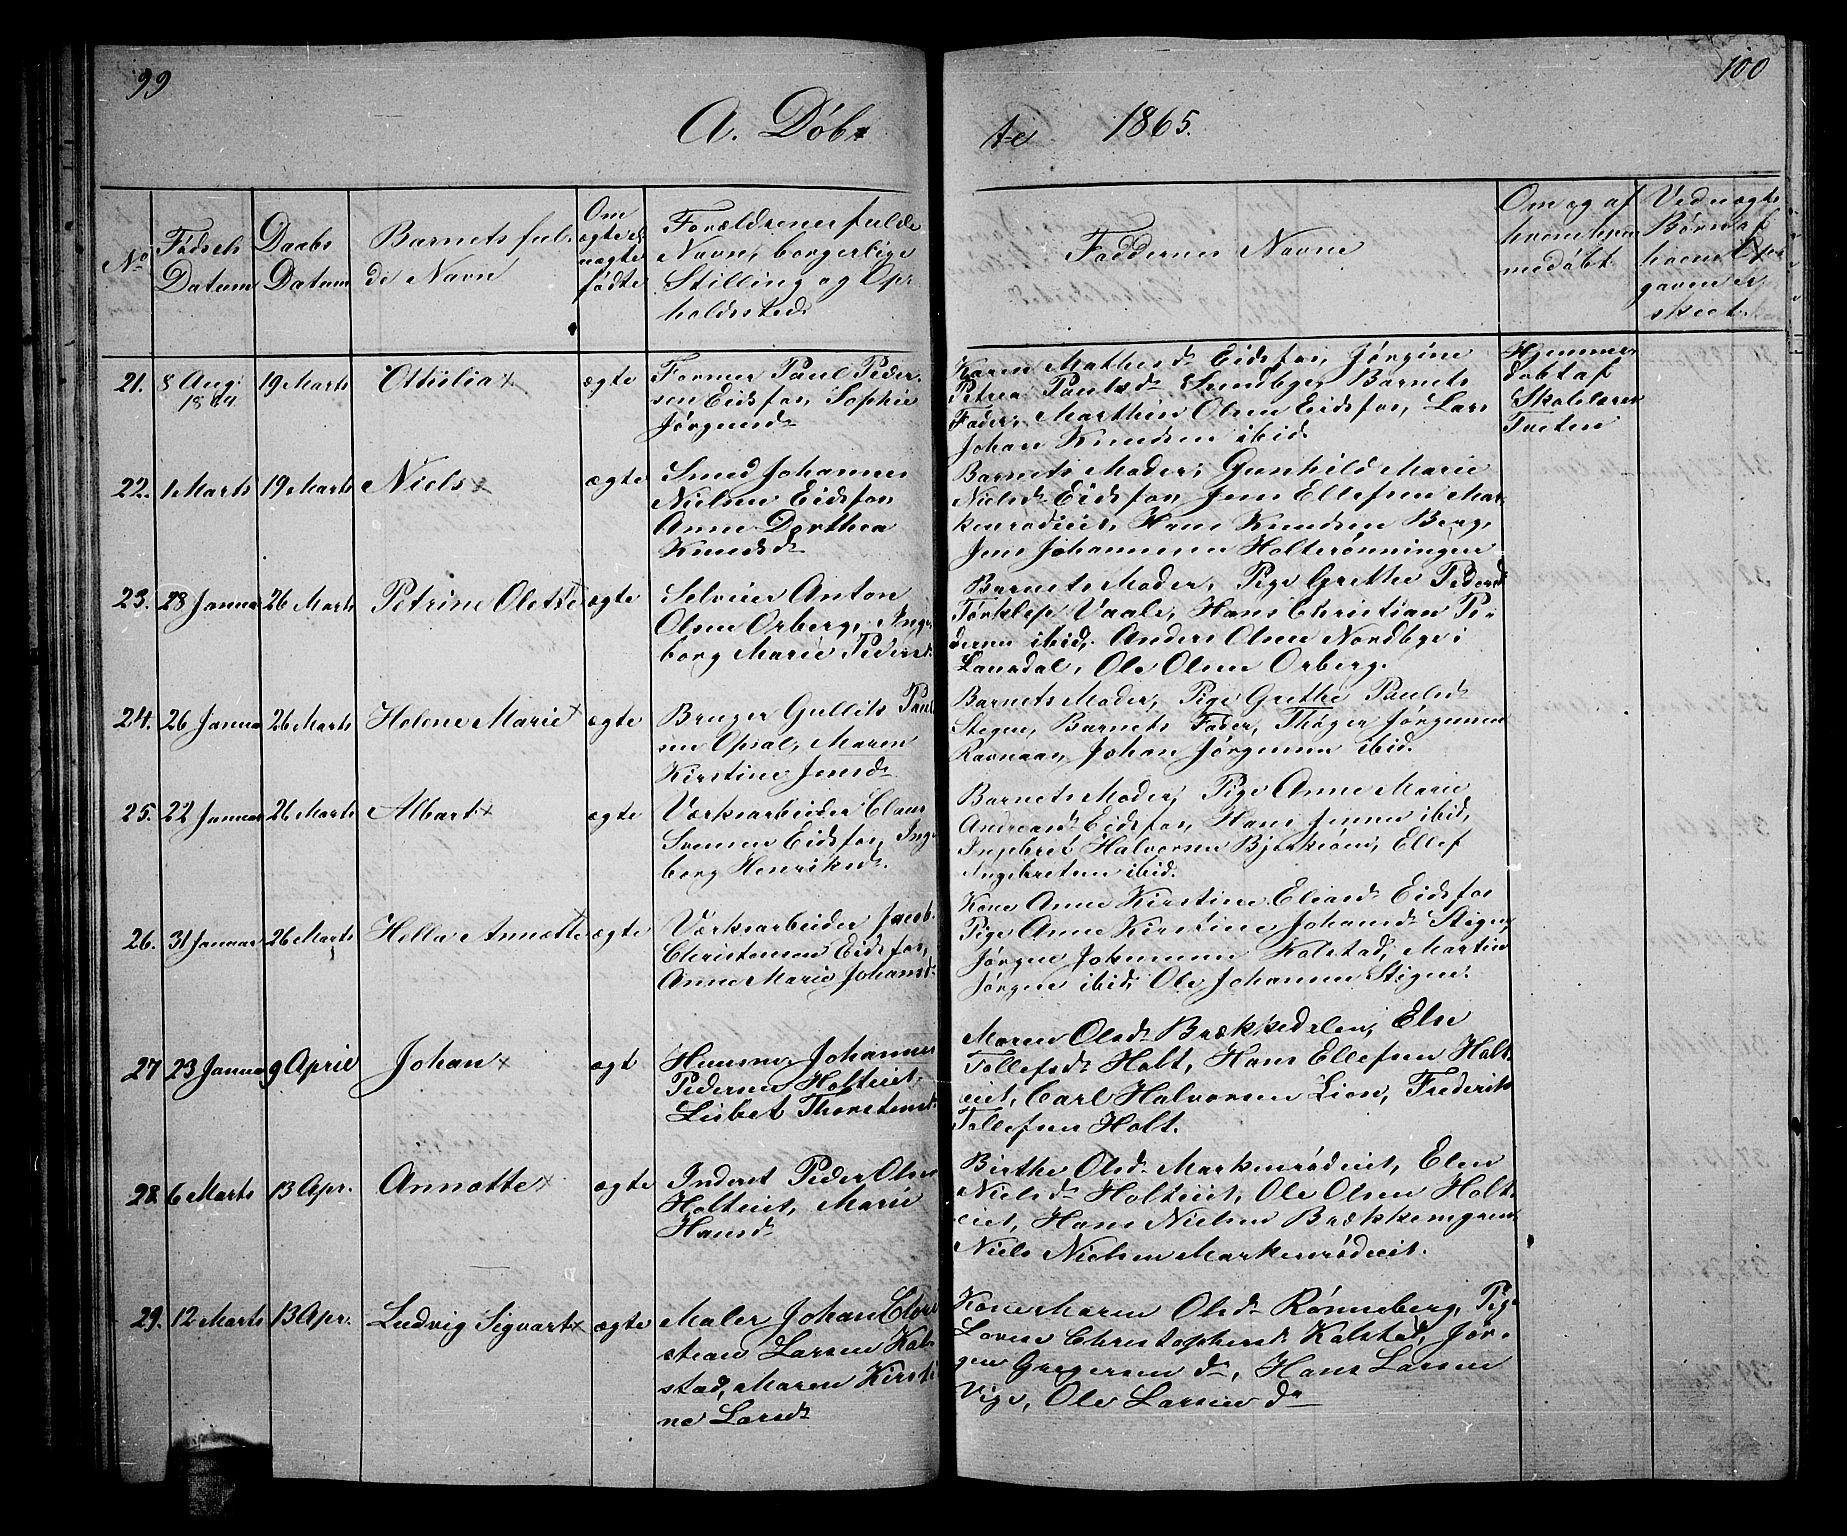 99
100
A. Døb
te 1865.
No
Fødsels Datum
Daabs Datum
Barnets ful-
de Navn
Om
ægte el
uægte
fødte
Forældrenes fulde
Navn, borgerlige
Stilling og Op-
holdssted
Faddernes Navne
Om og af
hvem hjem
medøbt
Ved uægte
Børn af
hvem Opga
gaven er
skeet.
21. 8 Aug. 1864 19 Marts Othilia x ægte
Former Paul Peder-
sen Eidsfos, Sophie
Jørgensd.
Karen Mathisd. Eidsfos, Jørgine
Petrea Paulsd. Sundbye, Barnets
Fader, Marthin Olsen Eidsfos, Lars
Johan Knudsen ibid.
Hjemme-
døbt af
Skolelærer
Tveten
22. 1 Marts 19 Marts Niels x ægte
Smed Johannes
Nielsen Eidsfos,
Anne Dorthea
Knudsd.
Barnets Moder, Gunhild Marie
Nielsd. Eidsfos, Jens Ellefsen Mar-
kenrødeiet, Hans Knudsen Berg,
Jens Johannesen Holterønningen
23. 28 Januar 26 Marts Petrine Olette x ægte
Selveier Anton
Olsen Orberg, Inge-
borg Marie Pedersd.
Barnets Moder, Pige Grethe Pedersd.
Tørklep Vaale, Hans Christian Pe-
dersen ibid. Anders Olsen Nordbye i
Laurdal, Ole Olsen Orberg.
24. 26 Januar 26 Marts Helene Marie x ægte
Bruger Gullik Paul
sen Opsal, Maren
Kirstine Jensd.
Barnets Moder, Pige Grethe Paulsd.
Stegne, Barnets Fader, Thøger Jørgensen
Ravnaas, Johan Jørgensen ibid.
25. 22 Januar 26 Marts Albart x ægte
Værksarbeider Claus
Svensen Eidsfos, Inge
borg Henriksd.
Barnets Moder, Pige Anne Marie
Andreasd. Eidsfos, Hans Jensen ibid,
Ingebret Halvorsen Bjerkøen, Ellef
Ingebretsen ibid.
26. 31 Januar 26 Marts Hella Annette x ægte
Værksarbeider Jacob
Christensen Eidsfos,
Anne Marie Johansd.
Kone Anne Kirstine Eliasd. Eidsfos
Pige Anne Kirstine Johansd. Stigne,
Jørgen Johannesen Kolstad, Martin
Jørgensen ibid, Ole Johannesen Stigne.
27 23 Januar 9 April Johan x ægt
Huusm. Johannes
Pedersen Holteiet,
Lisbet Thorstensd.
Maren Olsd. Brækkedalen, Else
Tollefsd. Holt, Hans Ellefsen Holt-
eiet, Carl Halvorsen Lien, Frederik
Tollefsen Holt.
28. 6 Marts 13 Apr. Annette x ægte
Inderst Peder Olsen
Holteiet, Marie
Hansd.
Birthe Olsd. Markenrødeiet, Elen
Nielsd. Holteiet, Ole Olsen Holt-
eiet, Hans Nielsen Brækkemgren,
Niels Nielsen Markenrødeiet.
29. 12 Marts 13 Apr. Ludvig Sigvart x ægte
Maler Johan Chri
stian Larsen Kol-
stad, Maren Kirsti
ne Larsd.
Kone Maren Olsd. Rønneberg, Pige
Lovise Christophersd. Kolstad, Jør-
gen Gregersen do, Hans Larsen
Vige, Ole Larsen do